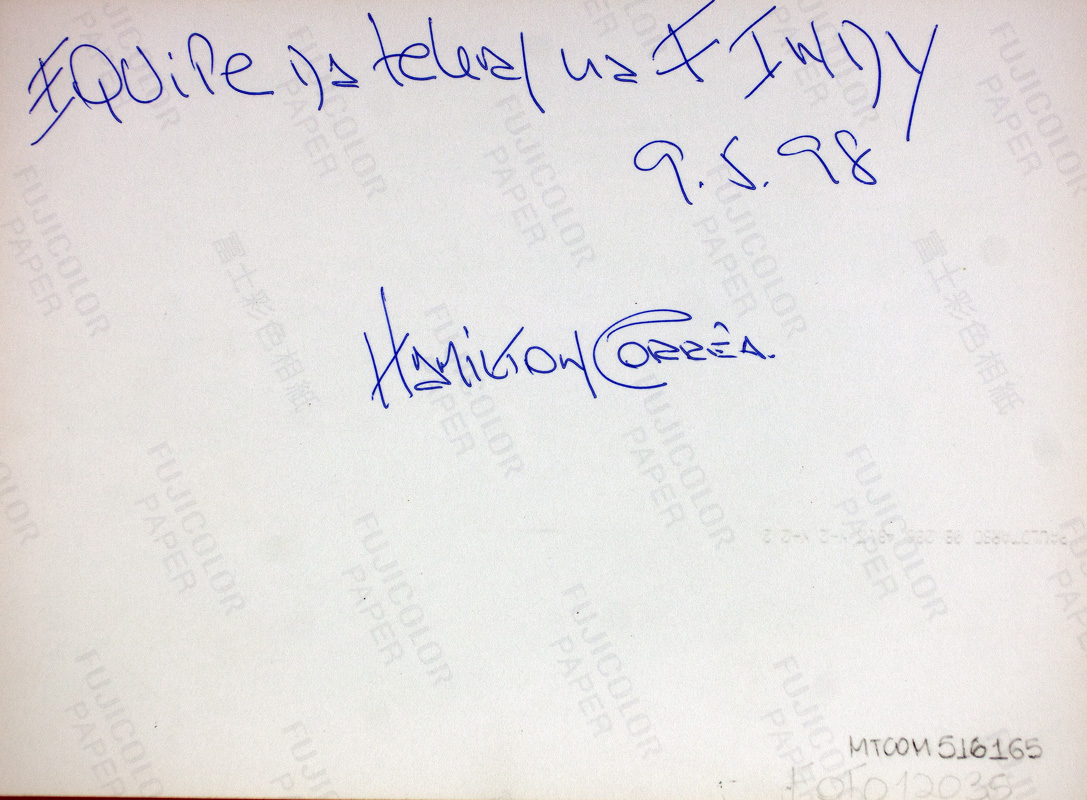 EQUIPE DA telerj na F INDY
9.5.98
HAMILTON CORRÊA.
MTCOM 516165
FUJICOLOR PAPER
富士彩色相紙